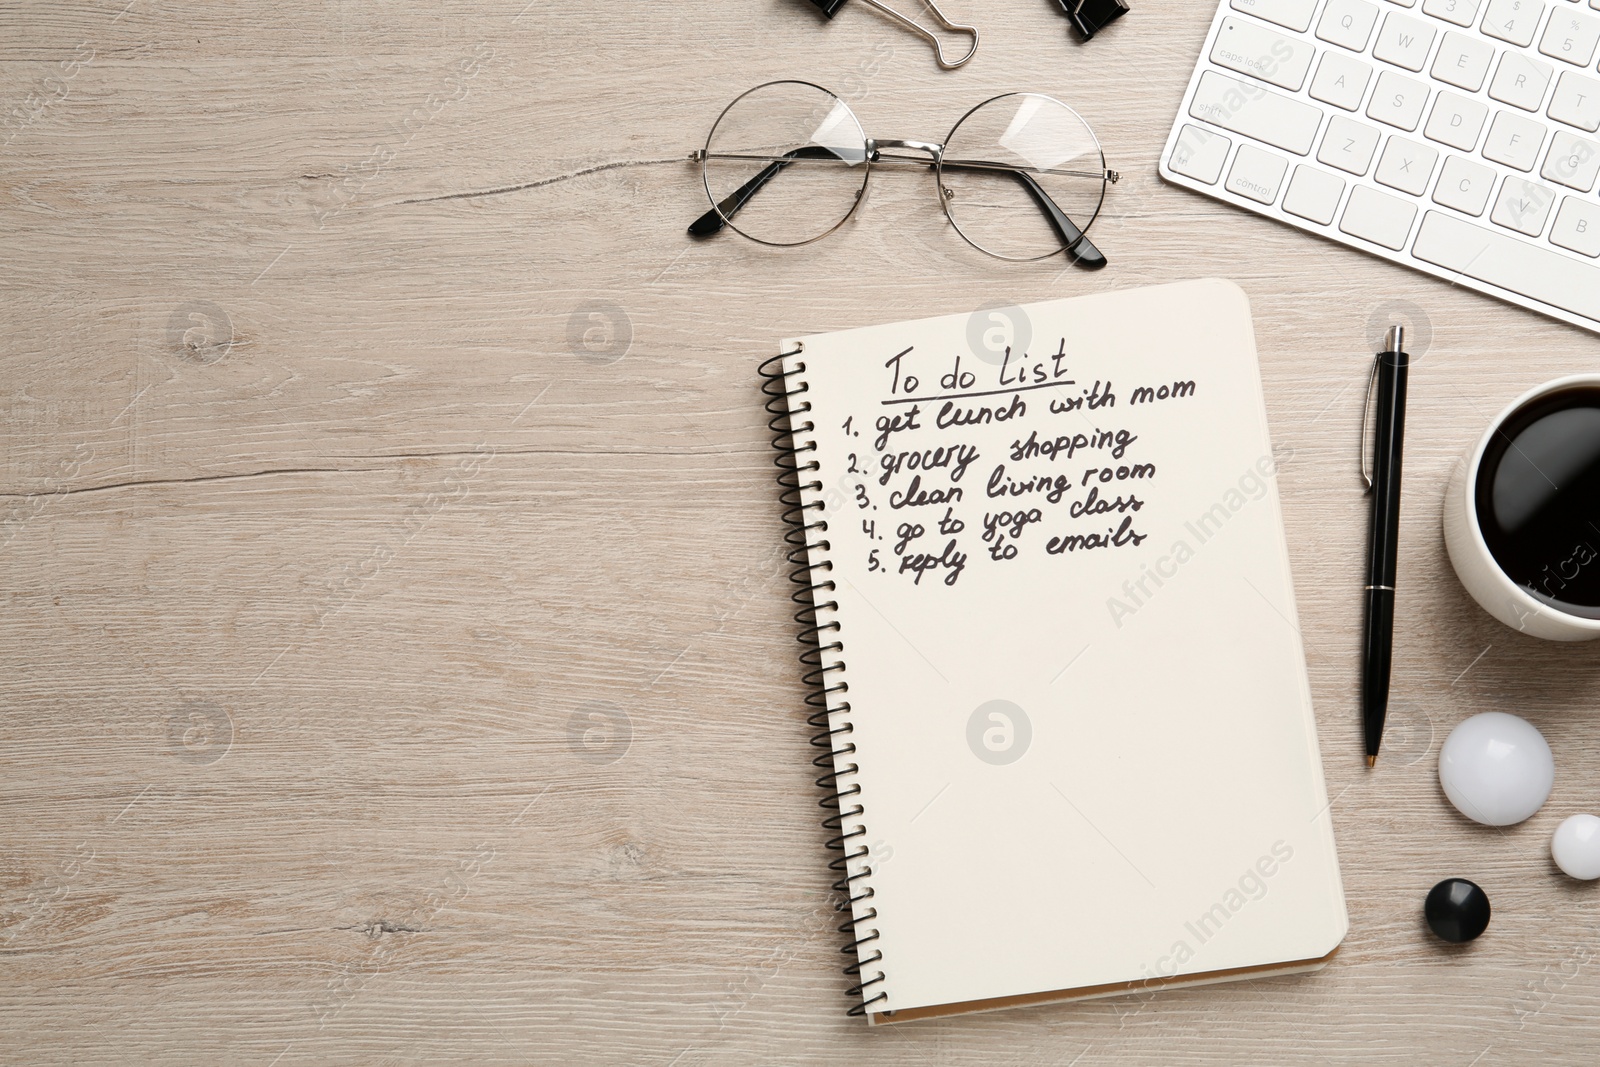 To do List
1. get lunch with mom
2. grocery shopping
3. clean living room
4. go to yoga class
5. reply to emails
tab
Q W E R T
caps lock
A S D F G
shift
Z X C V B
control
3
$
4
%
5
Africa Images
a